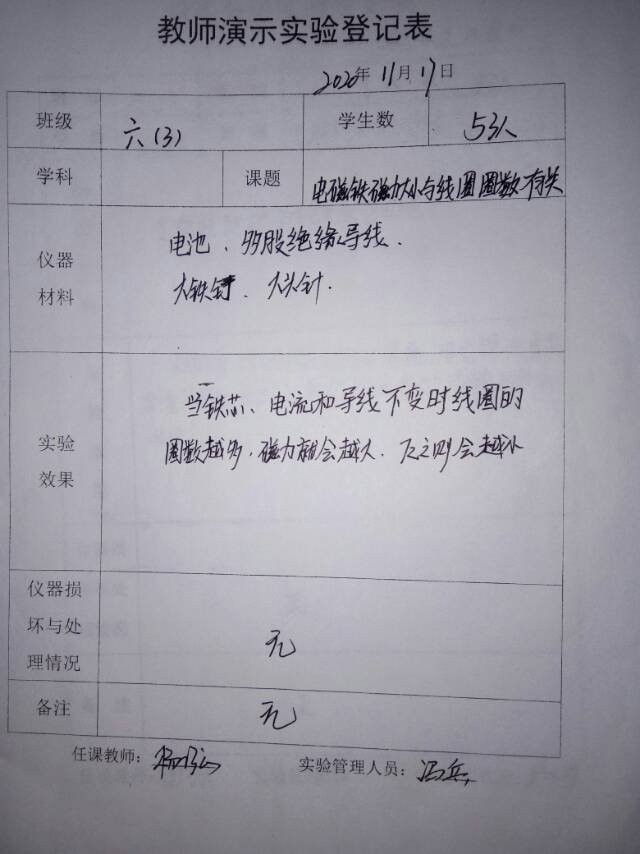 教师演示实验登记表
2020年 11月 17日
班级 六(3) 学生数 53人
学科 课题 电磁铁磁力大小与线圈圈数有关
仪器材料 电池、多股绝缘导线、
大铁钉、大头针.
实验效果 当铁芯、电流和导线不变时线圈的
圈数越多,磁力就会越大.反之则会越小
仪器损坏与处理情况 无
备注 无
任课教师: 实验管理人员:冯兵